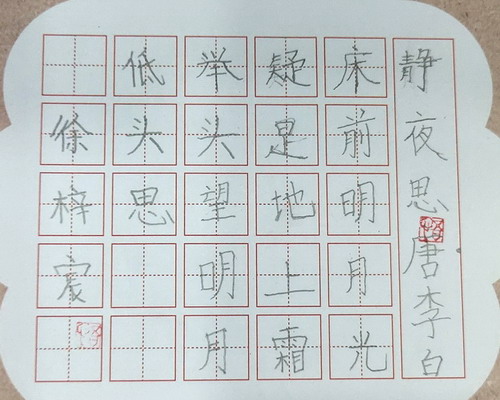 静夜思 唐李白
床前明月光
疑是地上霜
举头望明月
低头思
徐梓宸